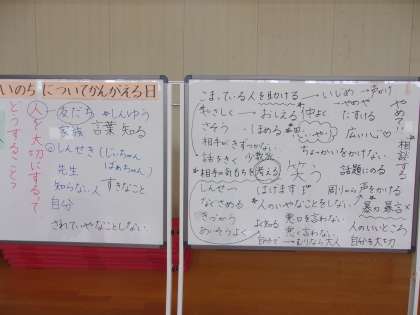 いのちについてかんがえる日
人を大切にするってどうすること?
友だち
しんゆう
家族 言葉 知る
しんせき(じいちゃん
ばあちゃん)
先生
知らない人 すきなこと
自分
されていやなことしない
こまっている人を助ける → いじめ →
やさしく おしえる 仲よく たすける
さそう ほめる 思いやり 広い心
相手をきずつけない
ちょっかいをかけない
話をきく 少数意
相手の気もちを考える
笑う
話題にのる
相談する
しんせつ はげます 周りから声をかける
なぐさめる 人のいやなことをしない 暴力暴言
きづかう 悪口を言わない 人のいいところ
あいさつ 悪く言わない
自分を大切